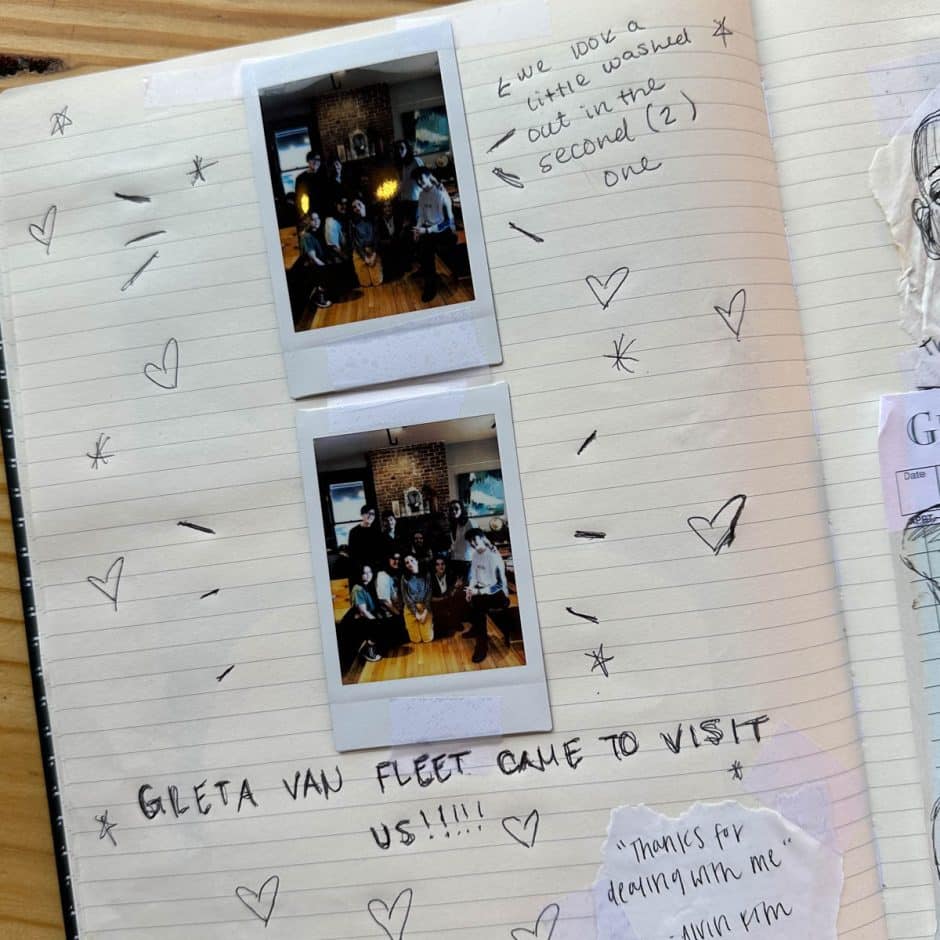 we look a
little washed
out in the
second (2)
one
GRETA VAN FLEET CAME TO VISIT
US!!!!!
"Thanks for
dealing with me"
KIM
G
Date